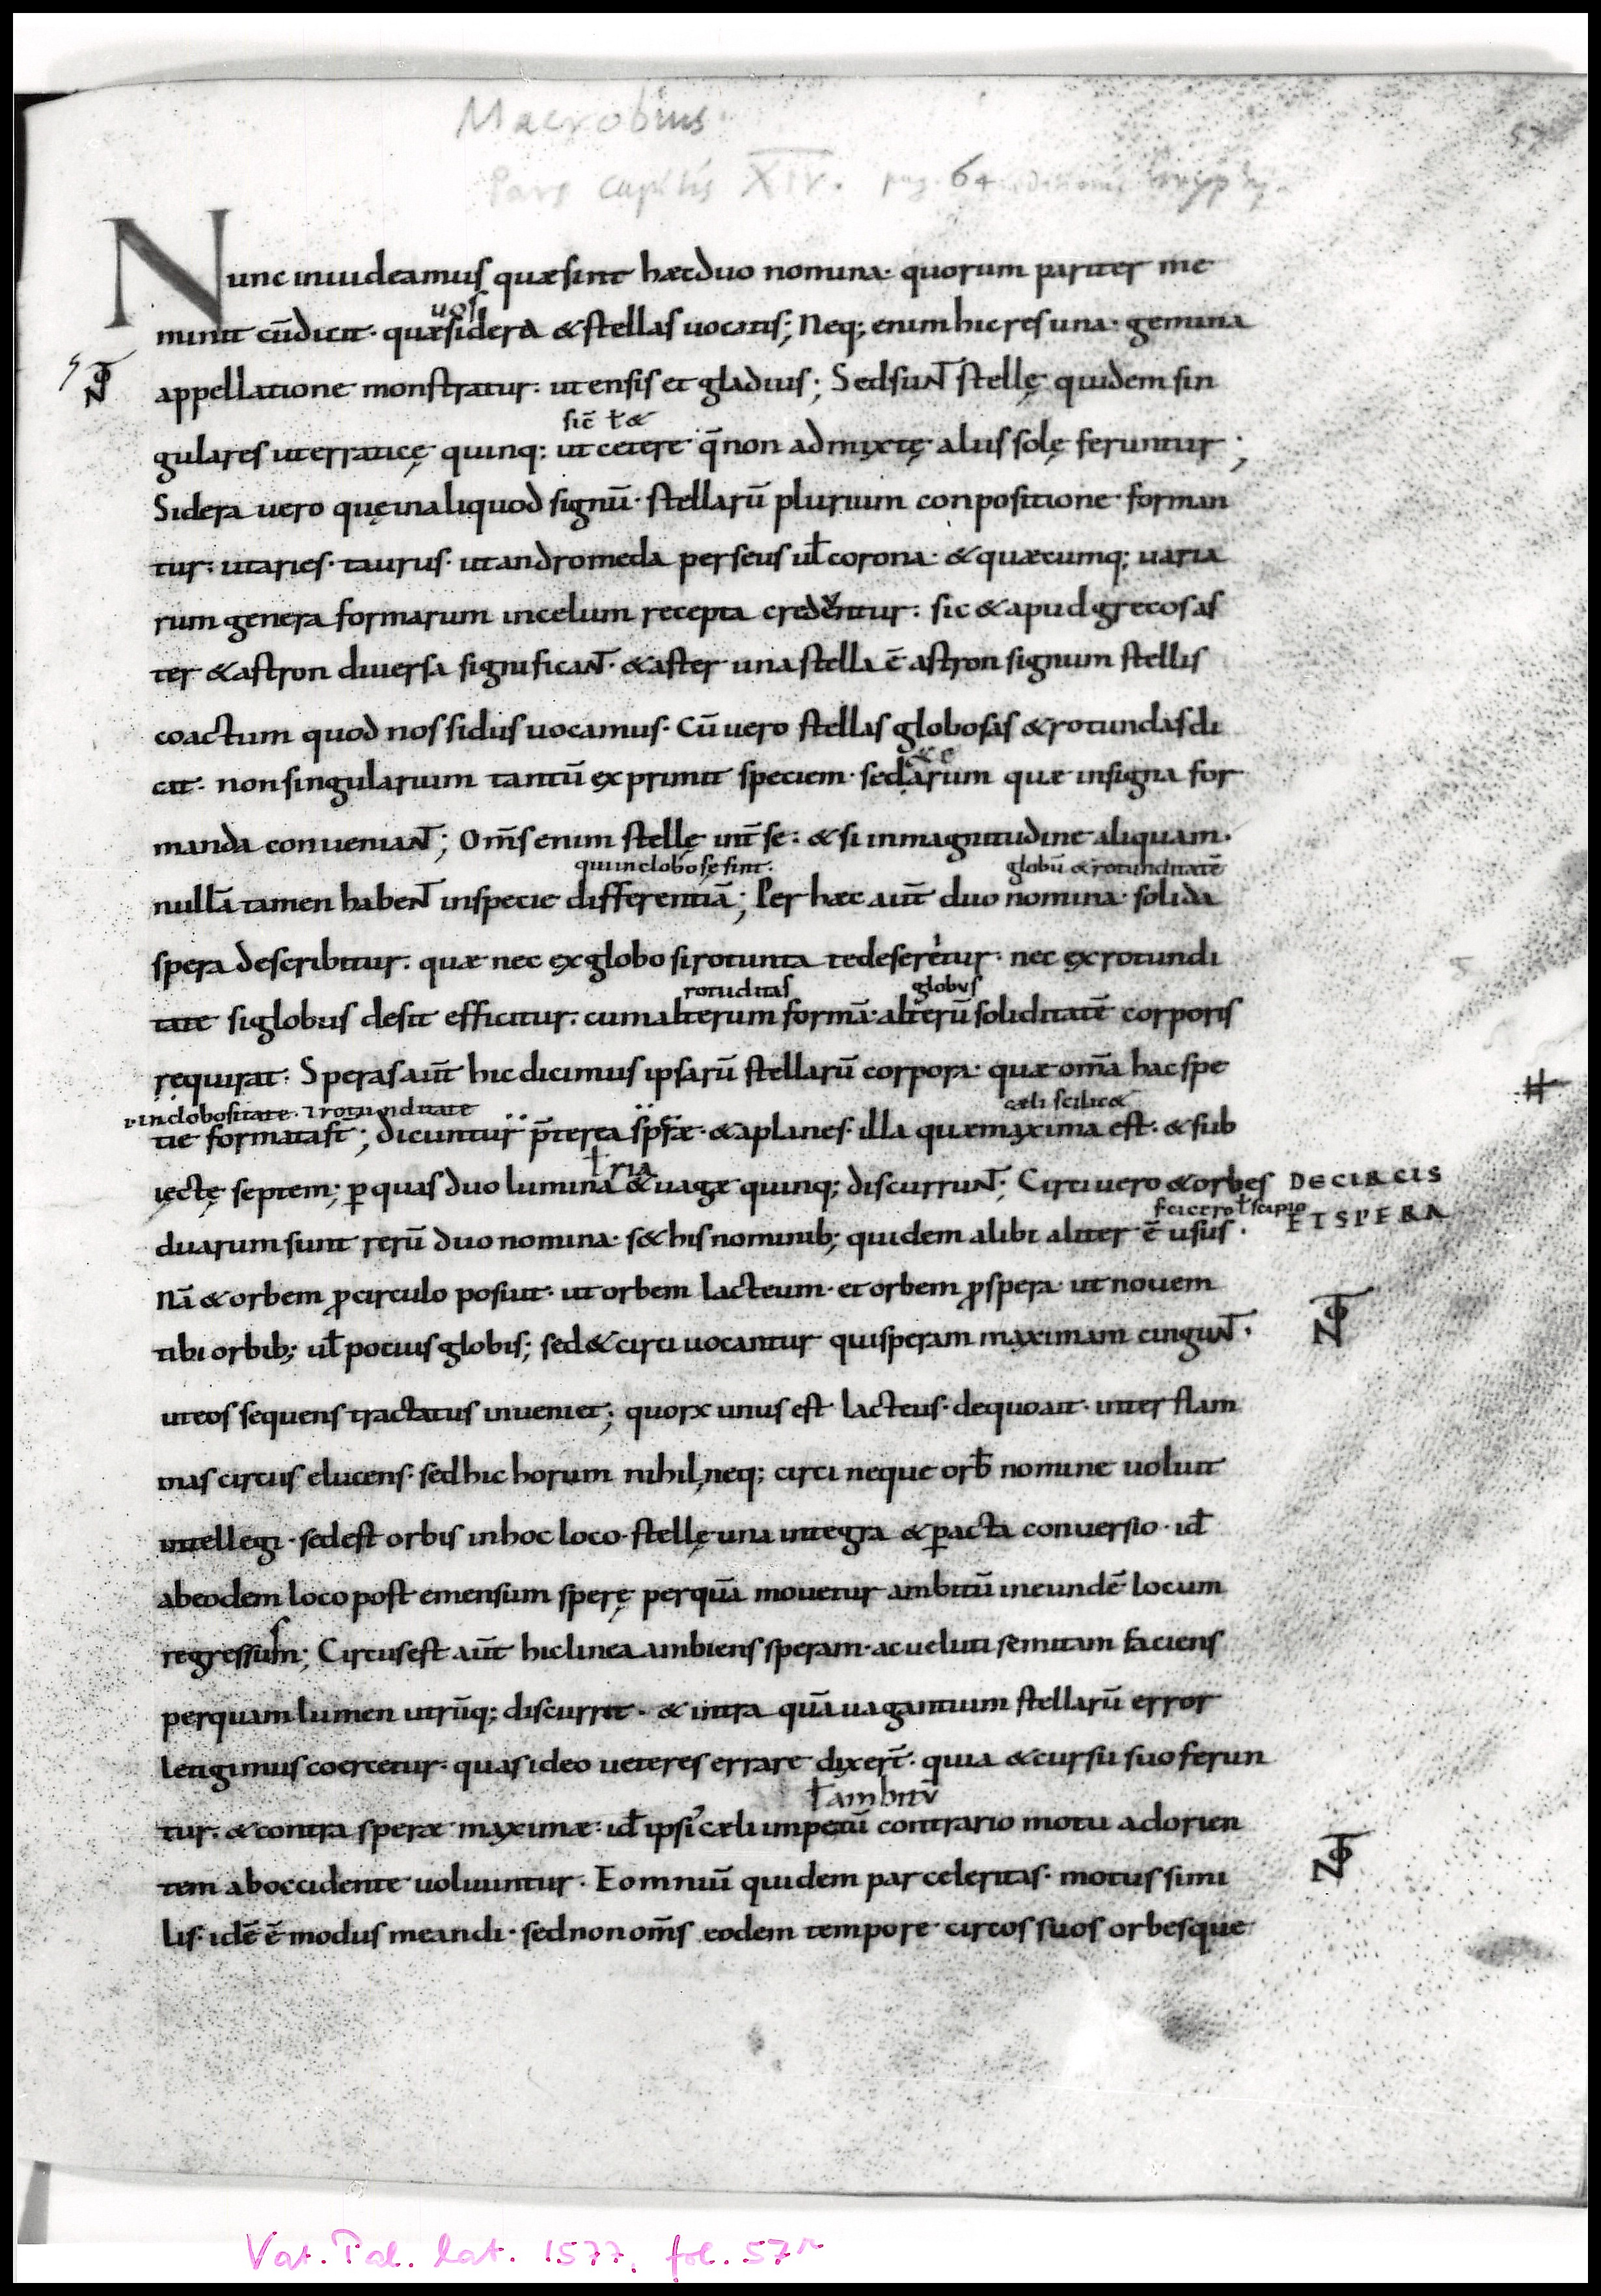 Macrobius
57
Pars capitis XIV. pag. 64
Nunc inuideamus quæ sint hæc duo nomina· quorum pariter me
uos
minit cū dicit· quæ sidera & stellas uocatis; Neq; enim hic res una· gemina
appellatione monstratur: ut ensis et gladius; Sed suNT stellę quidem sin
sic̄ ł &
gulares ut erraticę quinq: ut cetere q̄ non admixtę aliis solę feruntur;
Sidera uero quę in aliquod signū· stellarū plurium conpositione· forman
tur: ut aries· taurus· ut andromeda perseus ul̄ corona· & quæcumq; uaria
rum genera formarum in celum recepta credentur: sic & apud grecos as
ter & astron diuersa significaNT· & aster una stella ē astron signum stellis
coactum quod nos sidus uocamus· Cū uero stellas globosas & rotundas di
cit· non singularium tantū exprimit speciem· sed arum quæ in signa for
manda conueniaNT; Om̄s enim stellę int̄ se: & si in magnitudine aliquam·
qui in clobosę sint·
globū & rotunditatē
nullā tamen habeNT in specie differentiā; Per hæc aut̄ duo nomina· solida
spera describitur· quæ nec ex globo si rotunta te deseretur· nec ex rotundi
rotuditas
globus
tate si globus desit efficitur· cum alterum formā· alterū soliditatē corporis
requirat· Speras aut̄ hic dicimus ipsarū stellarū corpora· quæ om̄a hac spe
i· in clobositate· ⁊ rotunditate
cæli scilic&
tie formata st̄; dicuntur p̄terea spræ· & aplanes· illa quæ maxima est· & sub
ł ria
iectę septem; ꝑ quas duo lumina & uagæ quinq; discurruNT; Circi uero & orbes
DE CIRCIS
ET SPERA
s cicero ł scipio
duarum sunt rerū duo nomina· s& his nominib; quidem alibi aliter ē usus·
Nā & orbem ꝓ circulo posiut· ut orbem lacteum· et orbem ꝓ spera· ut nouem
tibi orbib; ul̄ pocius globis; sed & circi uocantur qui speram maximam cinguNT·
ut eos sequens tractatus inueniet; quorꝝ unus est lacteus· de quo ait· inter flam
mas circus elucens· sed hic horum nihil, neq; circi neque orb̄ nomine uoluit
intellegi· sed est orbis in hoc loco· stellę una integra & ꝑacta conuersio· id̄
ab eodem loco post emensum sperę per quā mouetur ambitū in eundē locum
regressum; Circus est aut̄ hic linea ambiens speram· ac ueluti semitam faciens
per quam lumen utrūq; discurrit· & intra quā uagantium stellarū error
legitimus coercetur· quas ideo ueteres errare dixer̄t· quia & cursu suo ferun
ł ambitū
tur· & contra speræ maximæ· id̄ ipsi cæli impetū contrario motu ad orien
tem ab occidente uoluuntur· E omniū quidem par celeritas· motus simi
lis· idē ē modus meandi· sed non om̄s eodem tempore circos suos orbesque
Vat. Pal. lat. 1577, fol. 57r